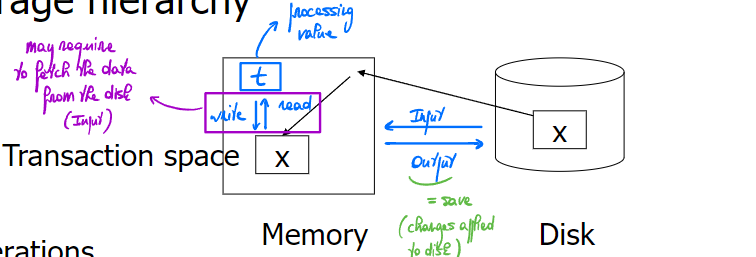 rage hierarchy
processing
value
may require
to fetch the data
from the disk
(Input)
t
write
read
Input
x
x
Transaction space
Output
= save
(changes applied
to disk)
Memory
Disk
erations